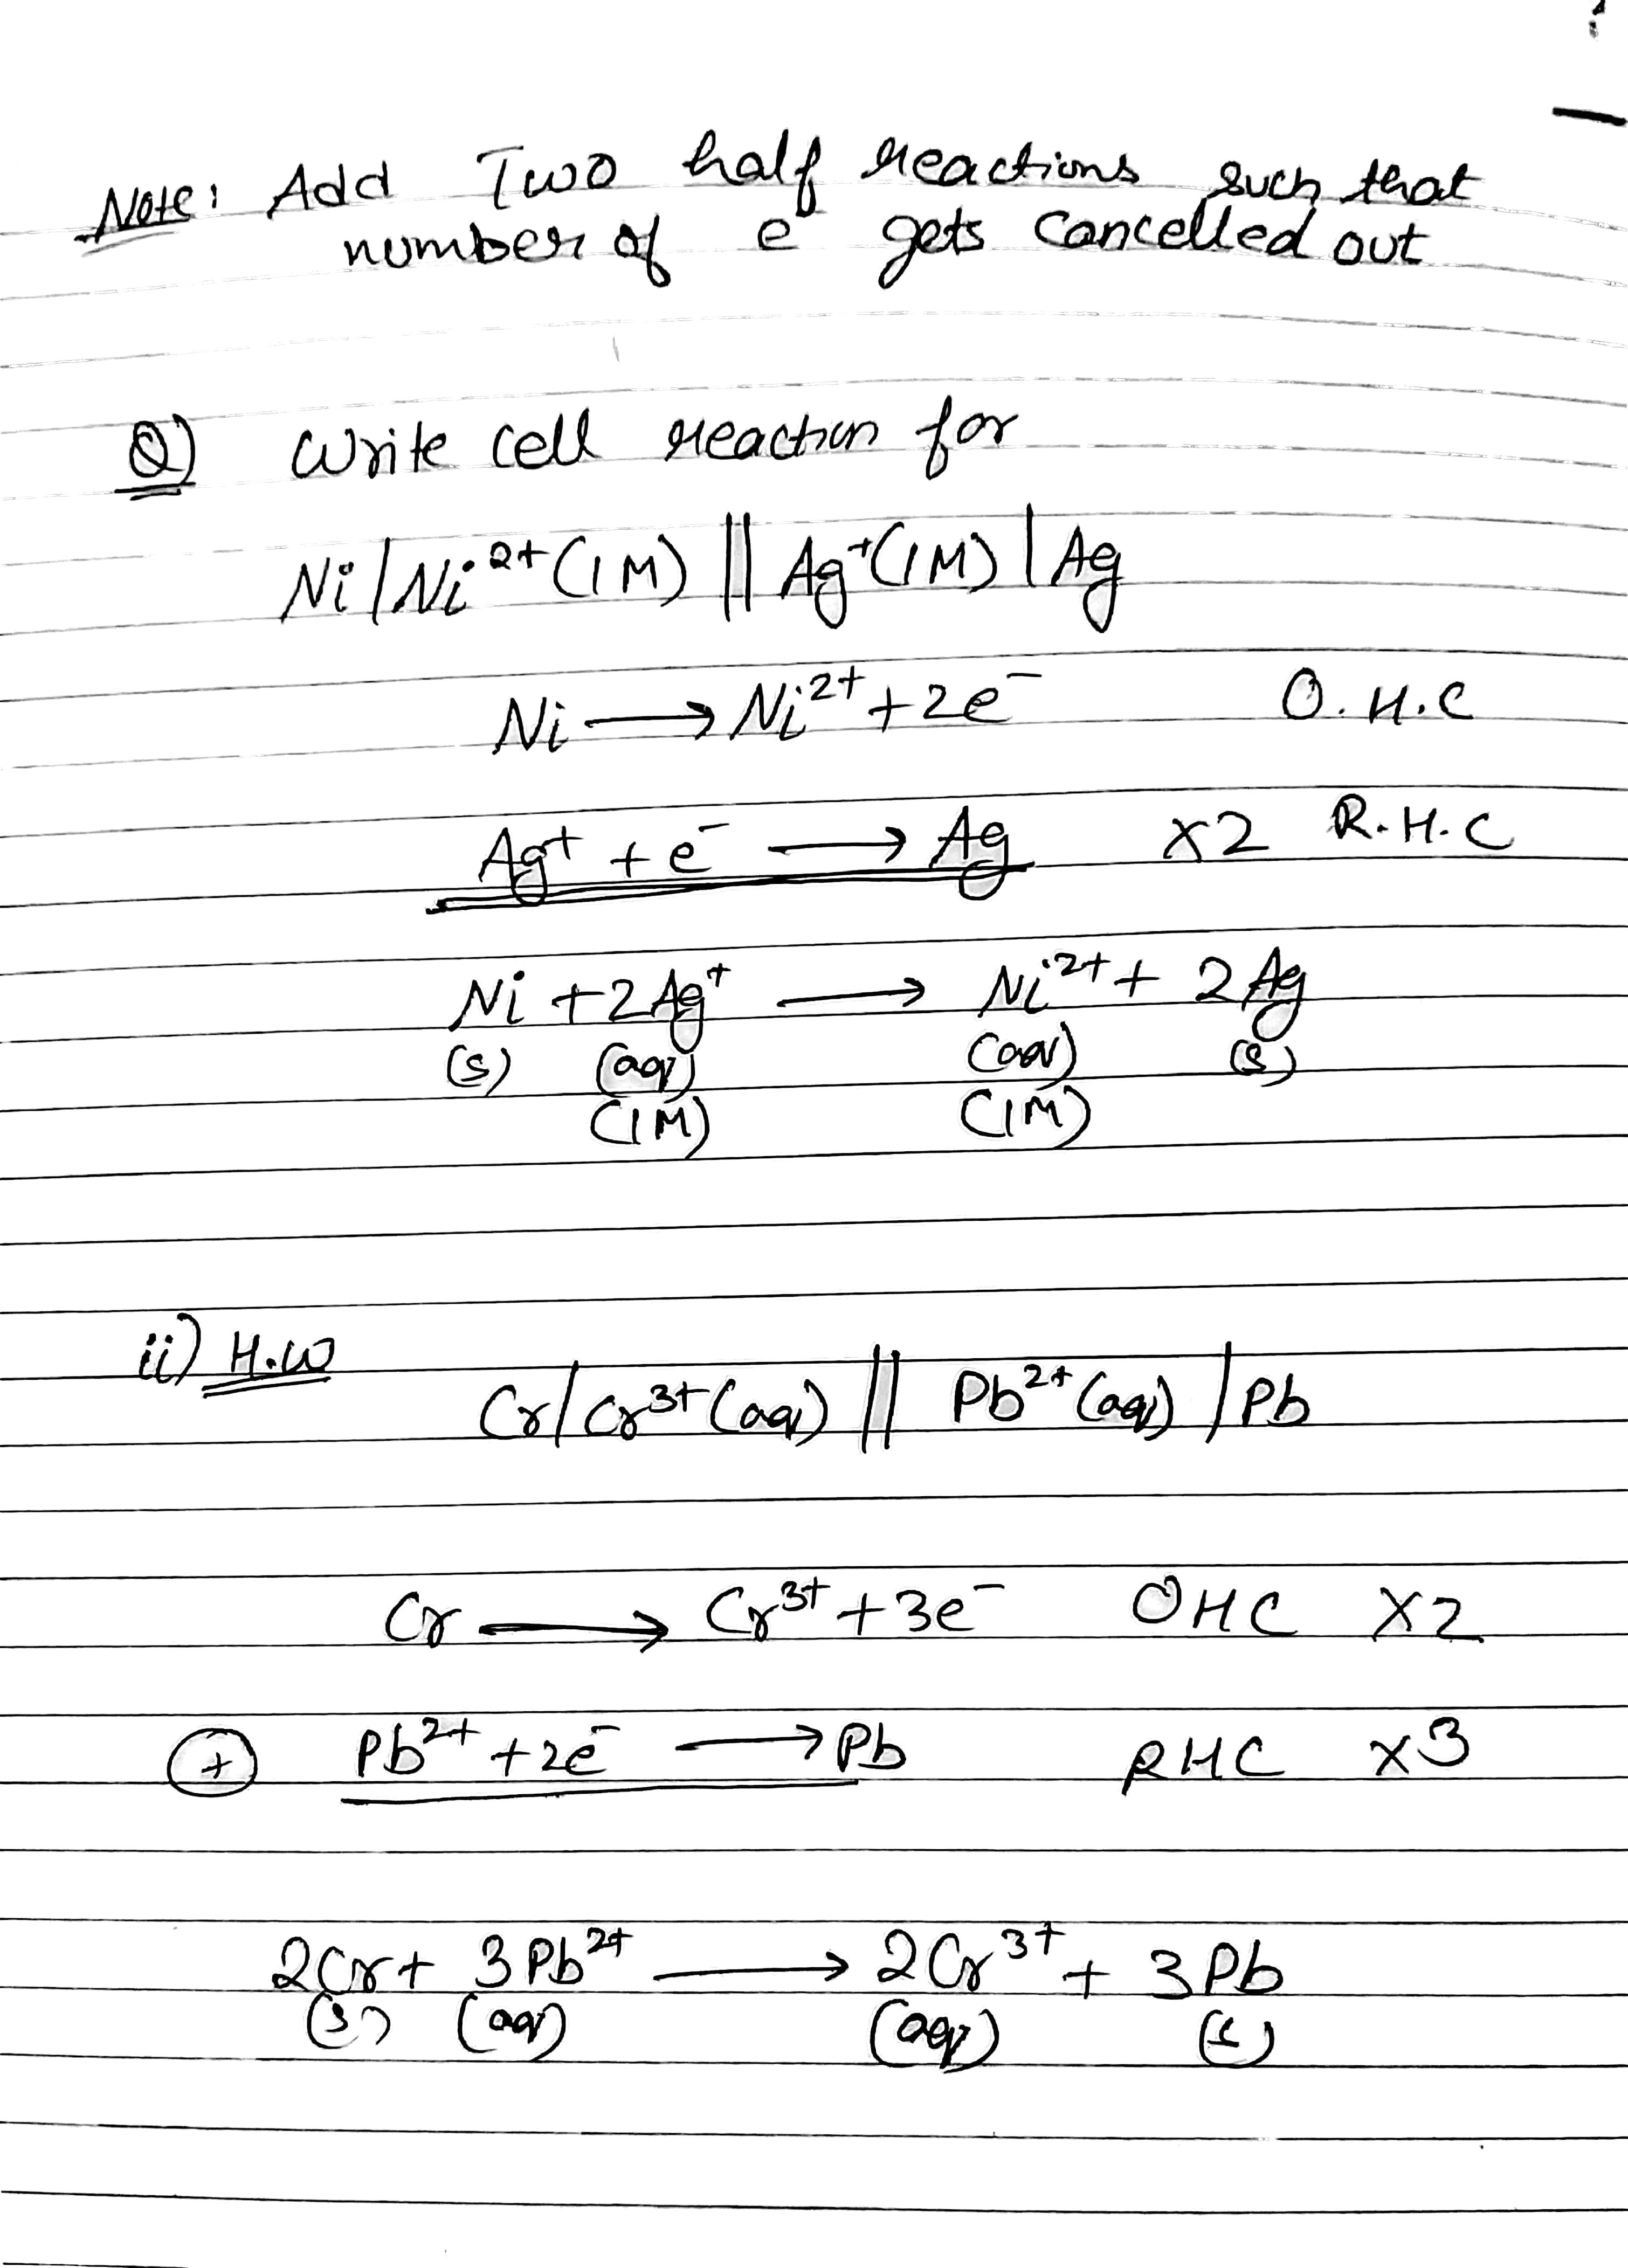 Note: Add Two half reactions such that
number of e⁻ gets cancelled out
Q) Write cell reaction for
Ni/Ni²⁺(1M) || Ag⁺(1M) | Ag
Ni ⟶ Ni²⁺ + 2e⁻ O.H.C
Ag⁺ + e⁻ ⟶ Ag ×2 R.H.C
Ni + 2Ag⁺ ⟶ Ni²⁺ + 2Ag
(s) (aq) (aq) (s)
(1M) (1M)
ii) H.W
Cr/Cr³⁺(aq) || Pb²⁺(aq) / Pb
Cr ⟶ Cr³⁺ + 3e⁻ OHC ×2
(+) Pb²⁺ + 2e⁻ ⟶ Pb RHC ×3
2Cr + 3Pb²⁺ ⟶ 2Cr³⁺ + 3Pb
(s) (aq) (aq) (s)